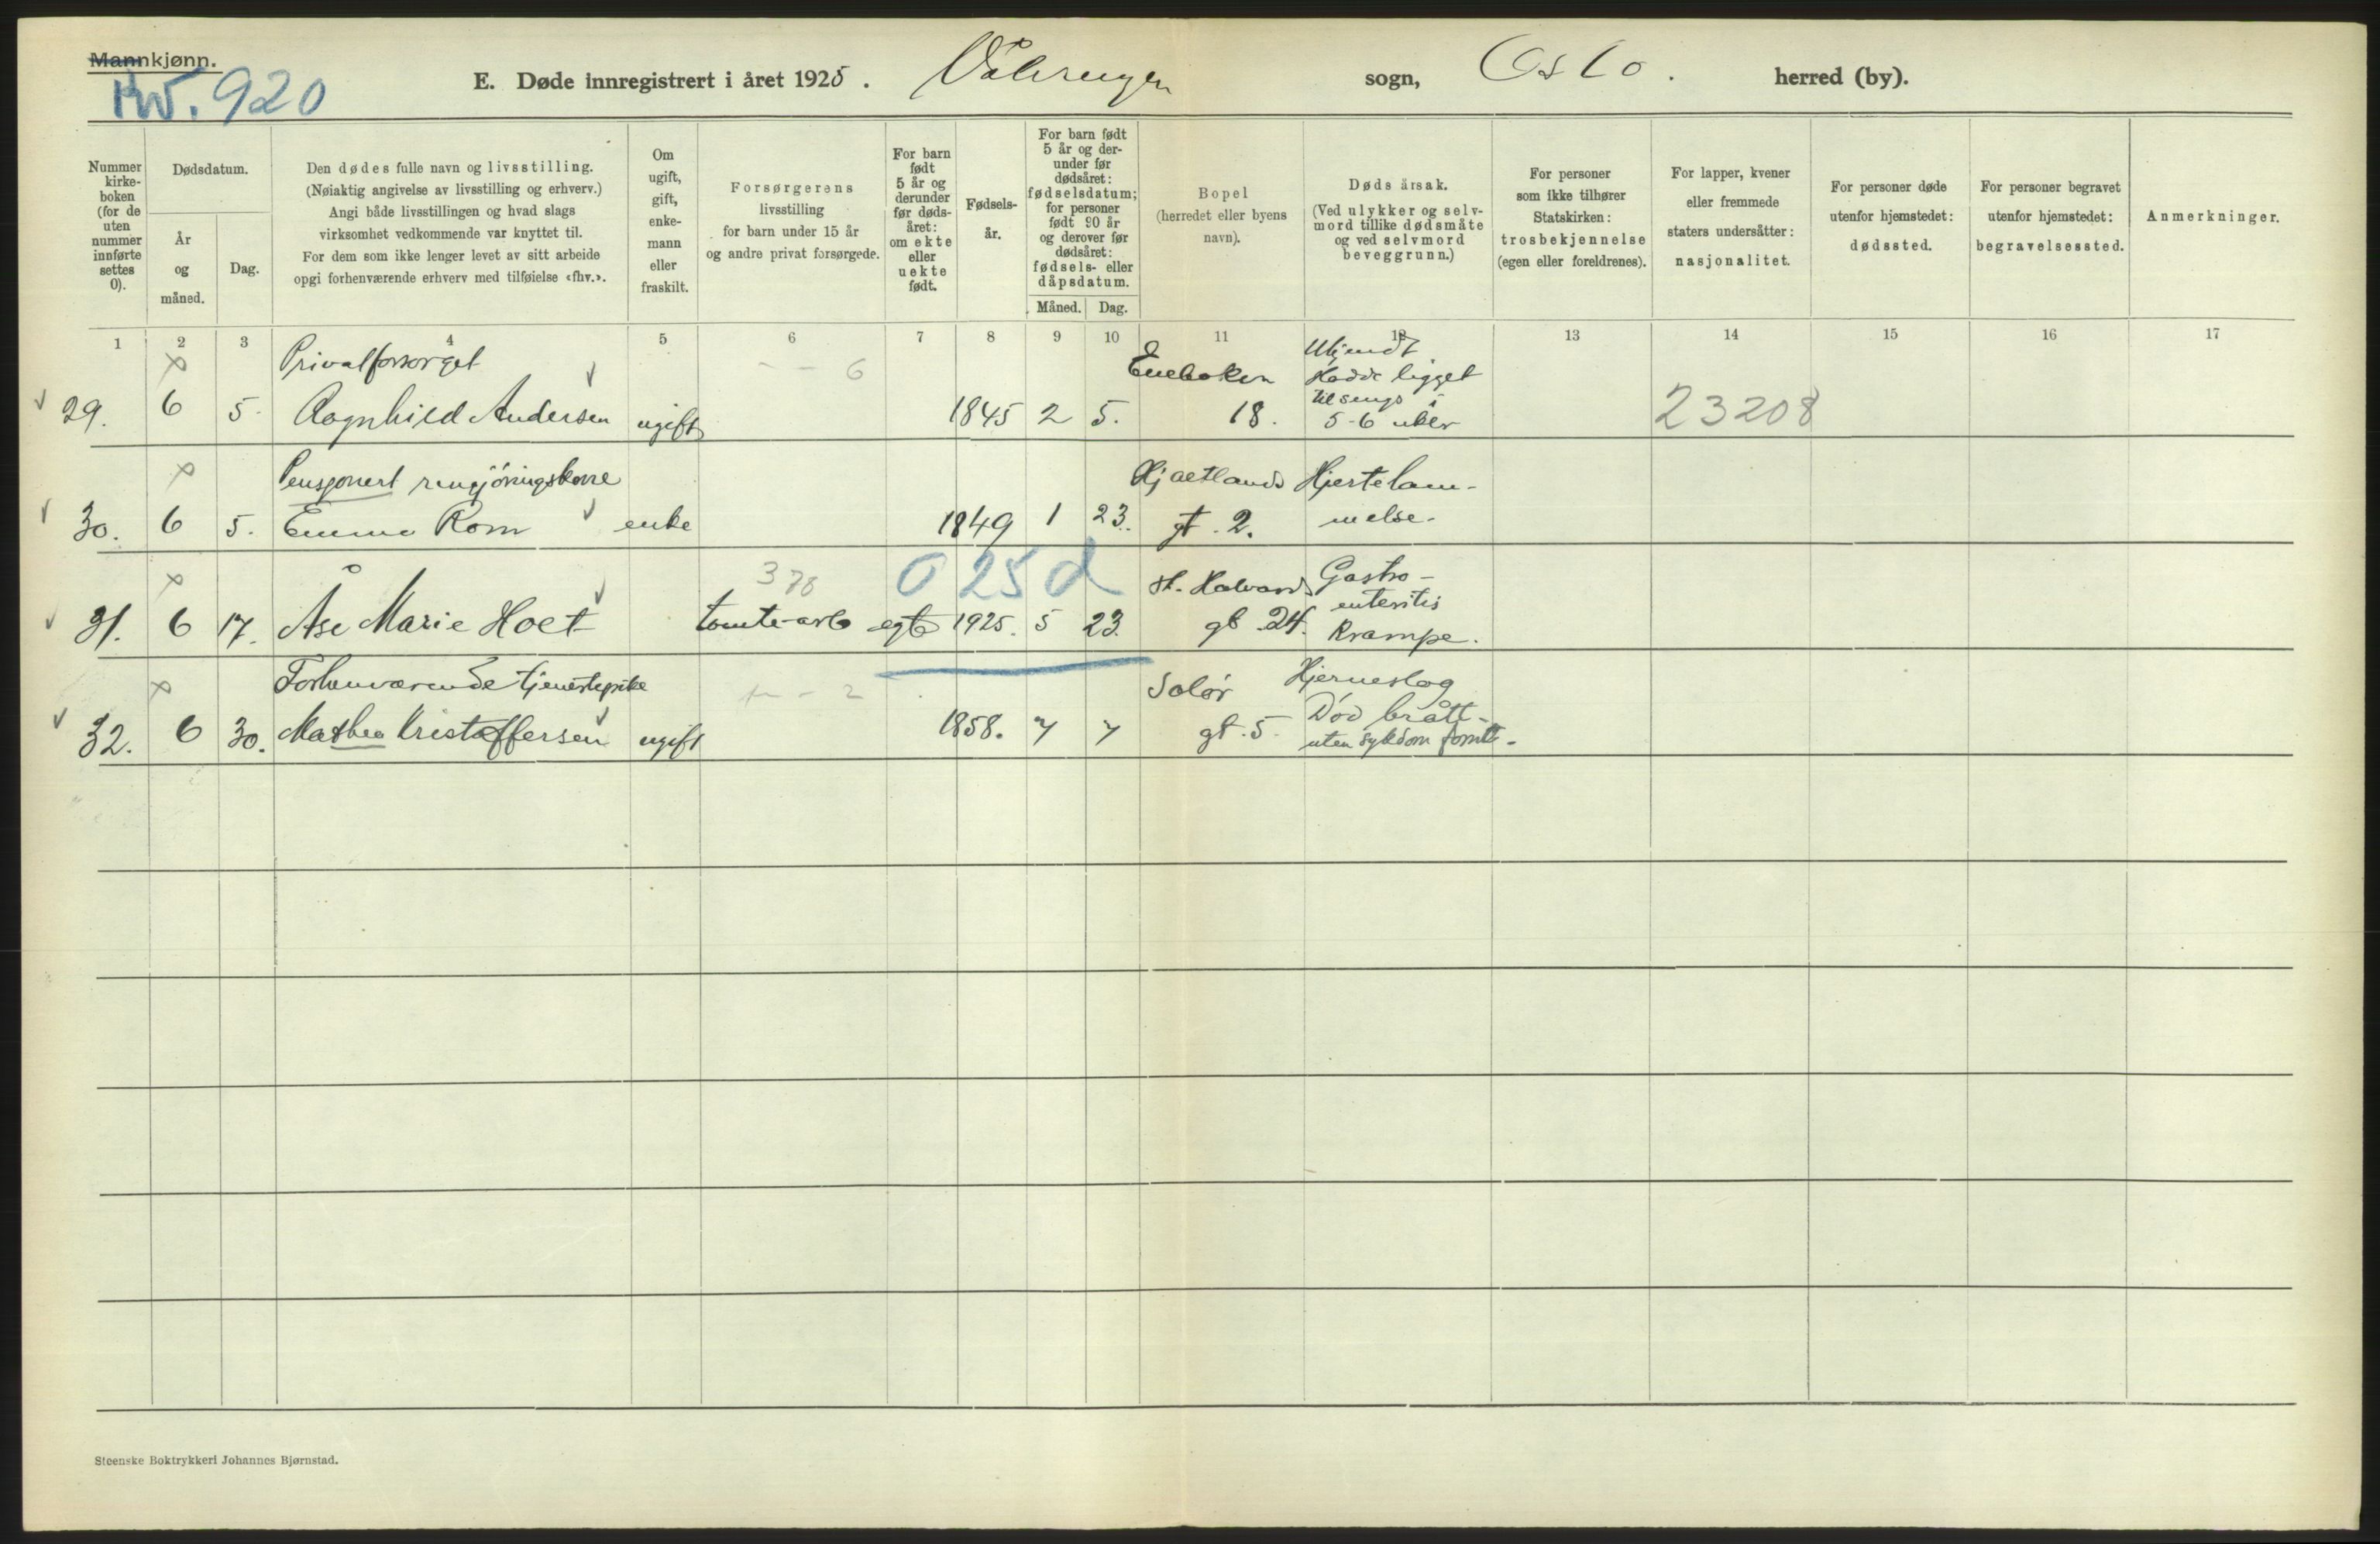 Mannkjønn.
Kv. 920
E. Døde innregistrert i året 1925. Vålerengen sogn, Oslo. herred (by).
Nummer kirke-boken (for de uten nummer innførte settes 0).
Dødsdatum.
År og måned.
Dag.
Den dødes fulle navn og livsstilling.
(Nøiaktig angivelse av livsstilling og erhverv.)
Angi både livsstillingen og hvad slags
virksomhet vedkommende var knyttet til.
For dem som ikke lenger levet av sitt arbeide
opgi forhenværende erhverv med tilføielse «fhv.».
Om ugift, gift, enke-mann eller fraskilt.
Forsørgerens
livsstilling
for barn under 15 år
og andre privat forsørgede.
For barn født 5 år og derunder før døds-året: om ekte eller uekte født.
Fødsels-år.
For barn født 5 år og der-under før dødsåret: fødselsdatum; for personer født 90 år og derover før dødsåret: fødsels- eller dåpsdatum.
Måned. Dag.
Bopel
(herredet eller byens navn).
Dødsårsak.
(Ved ulykker og selv-mord tillike dødsmåte og ved selvmord beveggrunn.)
For personer som ikke tilhører Statskirken: trosbekjennelse (egen eller foreldrenes).
For lapper, kvener eller fremmede staters undersåtter: nasjonalitet.
For personer døde utenfor hjemstedet: dødssted.
For personer begravet utenfor hjemstedet: begravelsessted.
Anmerkninger.
1 2 3 4 5 6 7 8 9 10 11 12 13 14 15 16 17
Privatforsørget - - 6 Enebakkv Ukjendt
Hadde ligget
til sengs i
29. 6 5. Ragnhild Andersen ugift 1845 2 5. 18. 5-6 uker 23208
Pensjonert rengjöringskone Hjaetlands Hjertelam-
30. 6 5. Emma Rom enke 1849 1 23. gt. 2. melse.
378 0 25 d St. Halvards Gastro-
enteritis
31. 6 17. Åse Marie Hoet tomtearb egte 1925. 5 23. gt. 24. Krampe.
Forhenværende tjenestepike - 2 Solör Hjerneslag
Död brått
32. 6 30. Mathea Kristoffersen ugift 1858. 7 7 gt. 5. uten sykdom forut.
Steenske Boktrykkeri Johannes Bjørnstad.